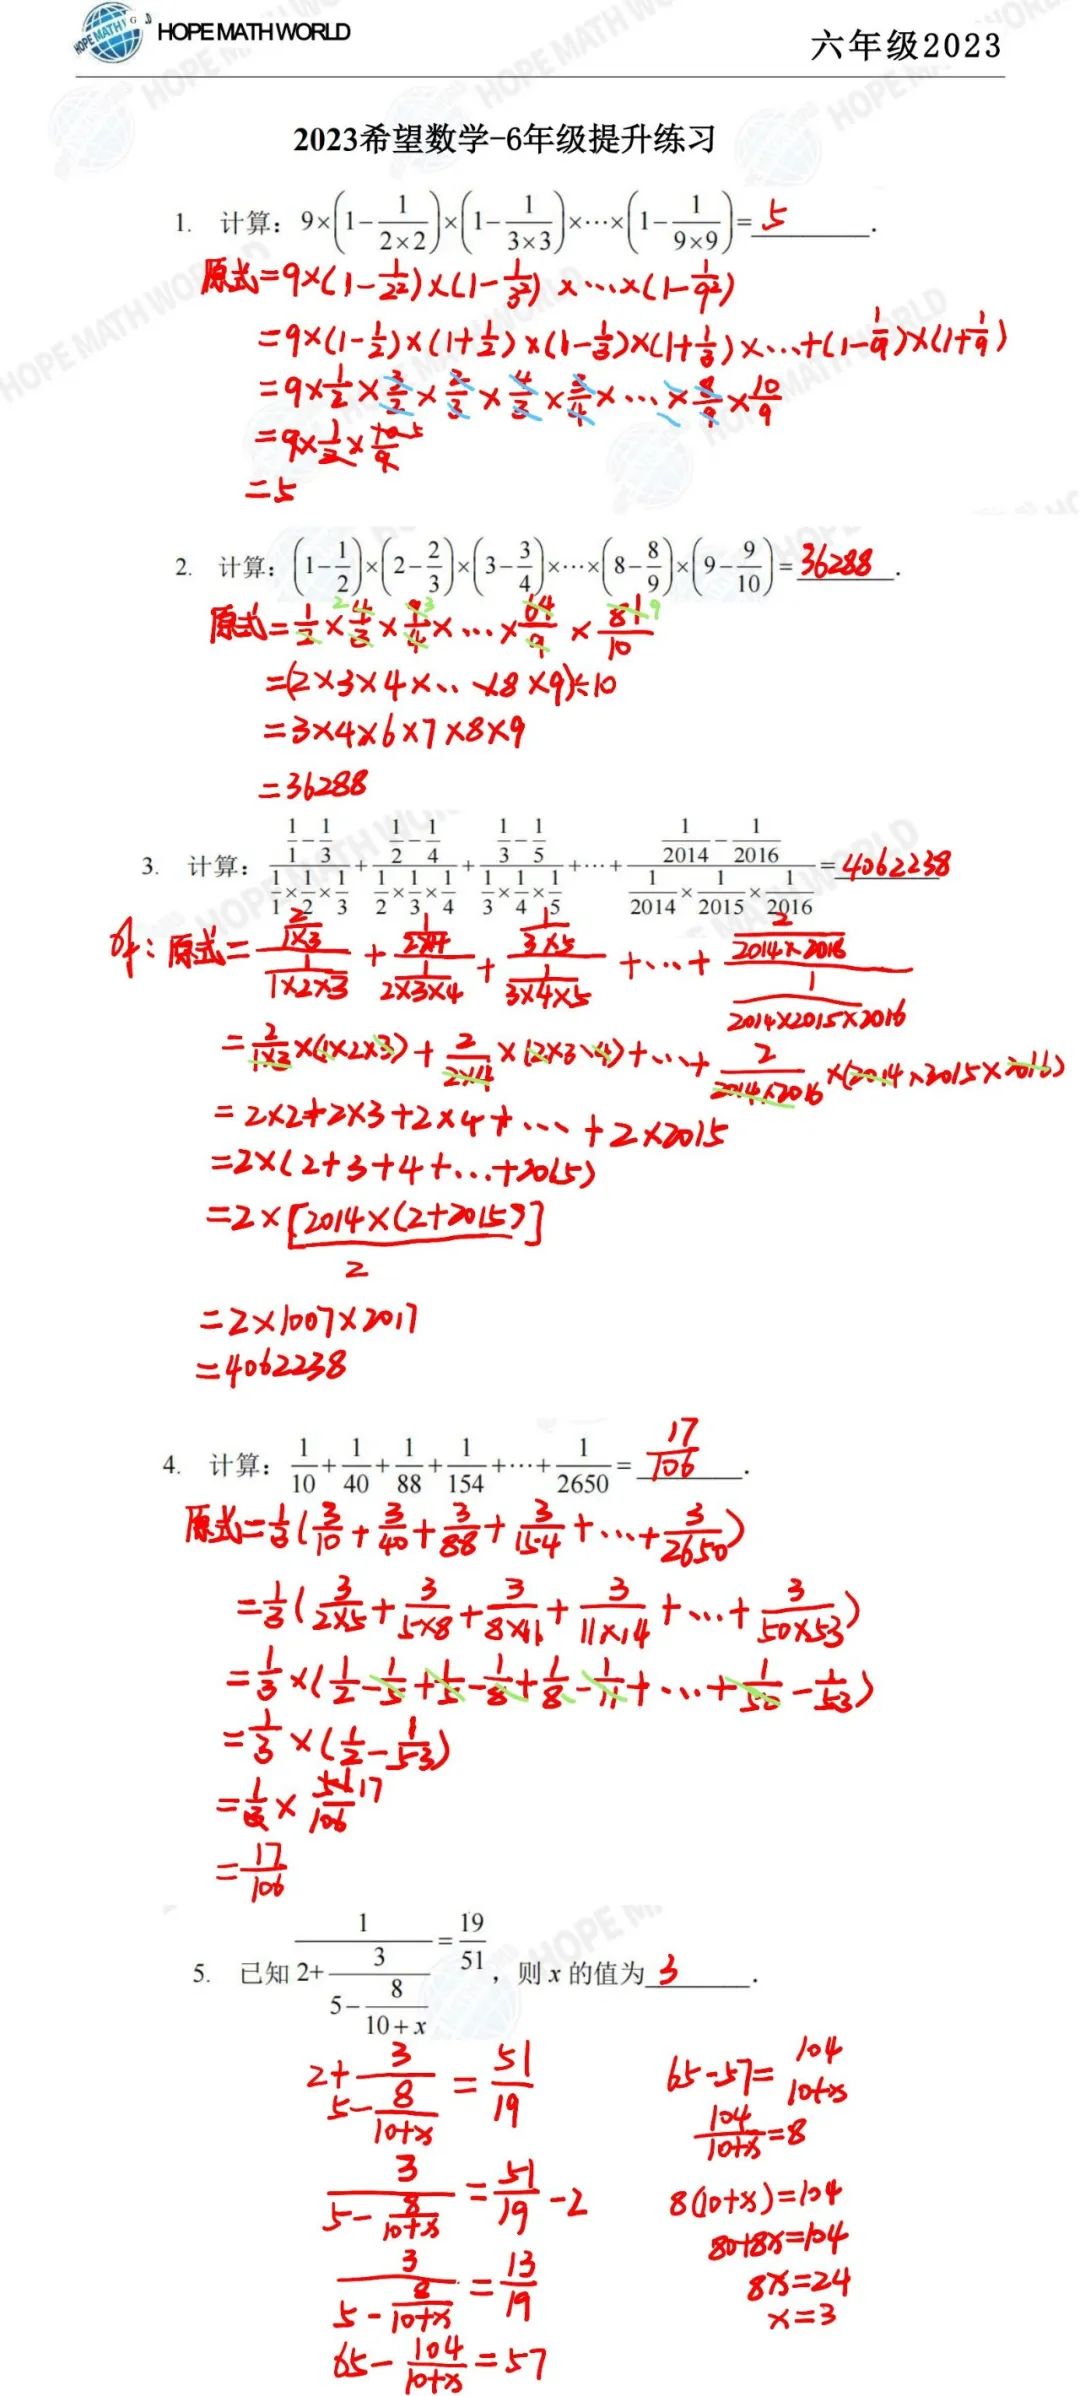 HOPE MATH WORLD
六年级2023
2023希望数学-6年级提升练习
1. 计算：9×(1-1/(2×2))×(1-1/(3×3))×…×(1-1/(9×9))=5.
原式=9×(1-1/2²)×(1-1/3²)×…×(1-1/9²)
=9×(1-1/2)×(1+1/2)×(1-1/3)×(1+1/3)×…+(1-1/9)×(1+1/9)
=9×1/2×3/2×2/3×4/3×3/4×…×8/9×10/9
=9×1/2×10/9 5
=5
2. 计算：(1-1/2)×(2-2/3)×(3-3/4)×…×(8-8/9)×(9-9/10)=36288.
原式=1/2×4/3 2×9/4 3×…×64/9×81/10 9
=(2×3×4×…×8×9)÷10
=3×4×6×7×8×9
=36288
3. 计算：(1/1-1/3)/(1/1×1/2×1/3)+(1/2-1/4)/(1/2×1/3×1/4)+(1/3-1/5)/(1/3×1/4×1/5)+…+(1/2014-1/2016)/(1/2014×1/2015×1/2016)=4062238
：原式=(2/(1×3))/(1/(1×2×3))+(1/(2×4))/(1/(2×3×4))+(1/(3×5))/(1/(3×4×5))+…+(2/(2014×2016))/(1/(2014×2015×2016))
=2/(1×3)×(1×2×3)+2/(2×4)×(2×3×4)+…+2/(2014×2016)×(2014×2015×2016)
=2×2+2×3+2×4+…+2×2015
=2×(2+3+4+…+2015)
=2×[2014×(2+2015)]/2
=2×1007×2017
=4062238
4. 计算：1/10+1/40+1/88+1/154+…+1/2650=17/106.
原式=1/3(3/10+3/40+3/88+3/154+…+3/2650)
=1/3(3/(2×5)+3/(5×8)+3/(8×11)+3/(11×14)+…+3/(50×53))
=1/3×(1/2-1/5+1/5-1/8+1/8-1/11+…+1/50-1/53)
=1/3×(1/2-1/53)
=1/3×51/106 17
=17/106
5. 已知1/(2+3/(5-8/(10+x)))=19/51，则x的值为3.
2+3/(5-8/(10+x))=51/19
3/(5-8/(10+x))=51/19-2
3/(5-8/(10+x))=13/19
65-104/(10+x)=57
65-57=104/(10+x)
104/(10+x)=8
8(10+x)=104
80+8x=104
8x=24
x=3